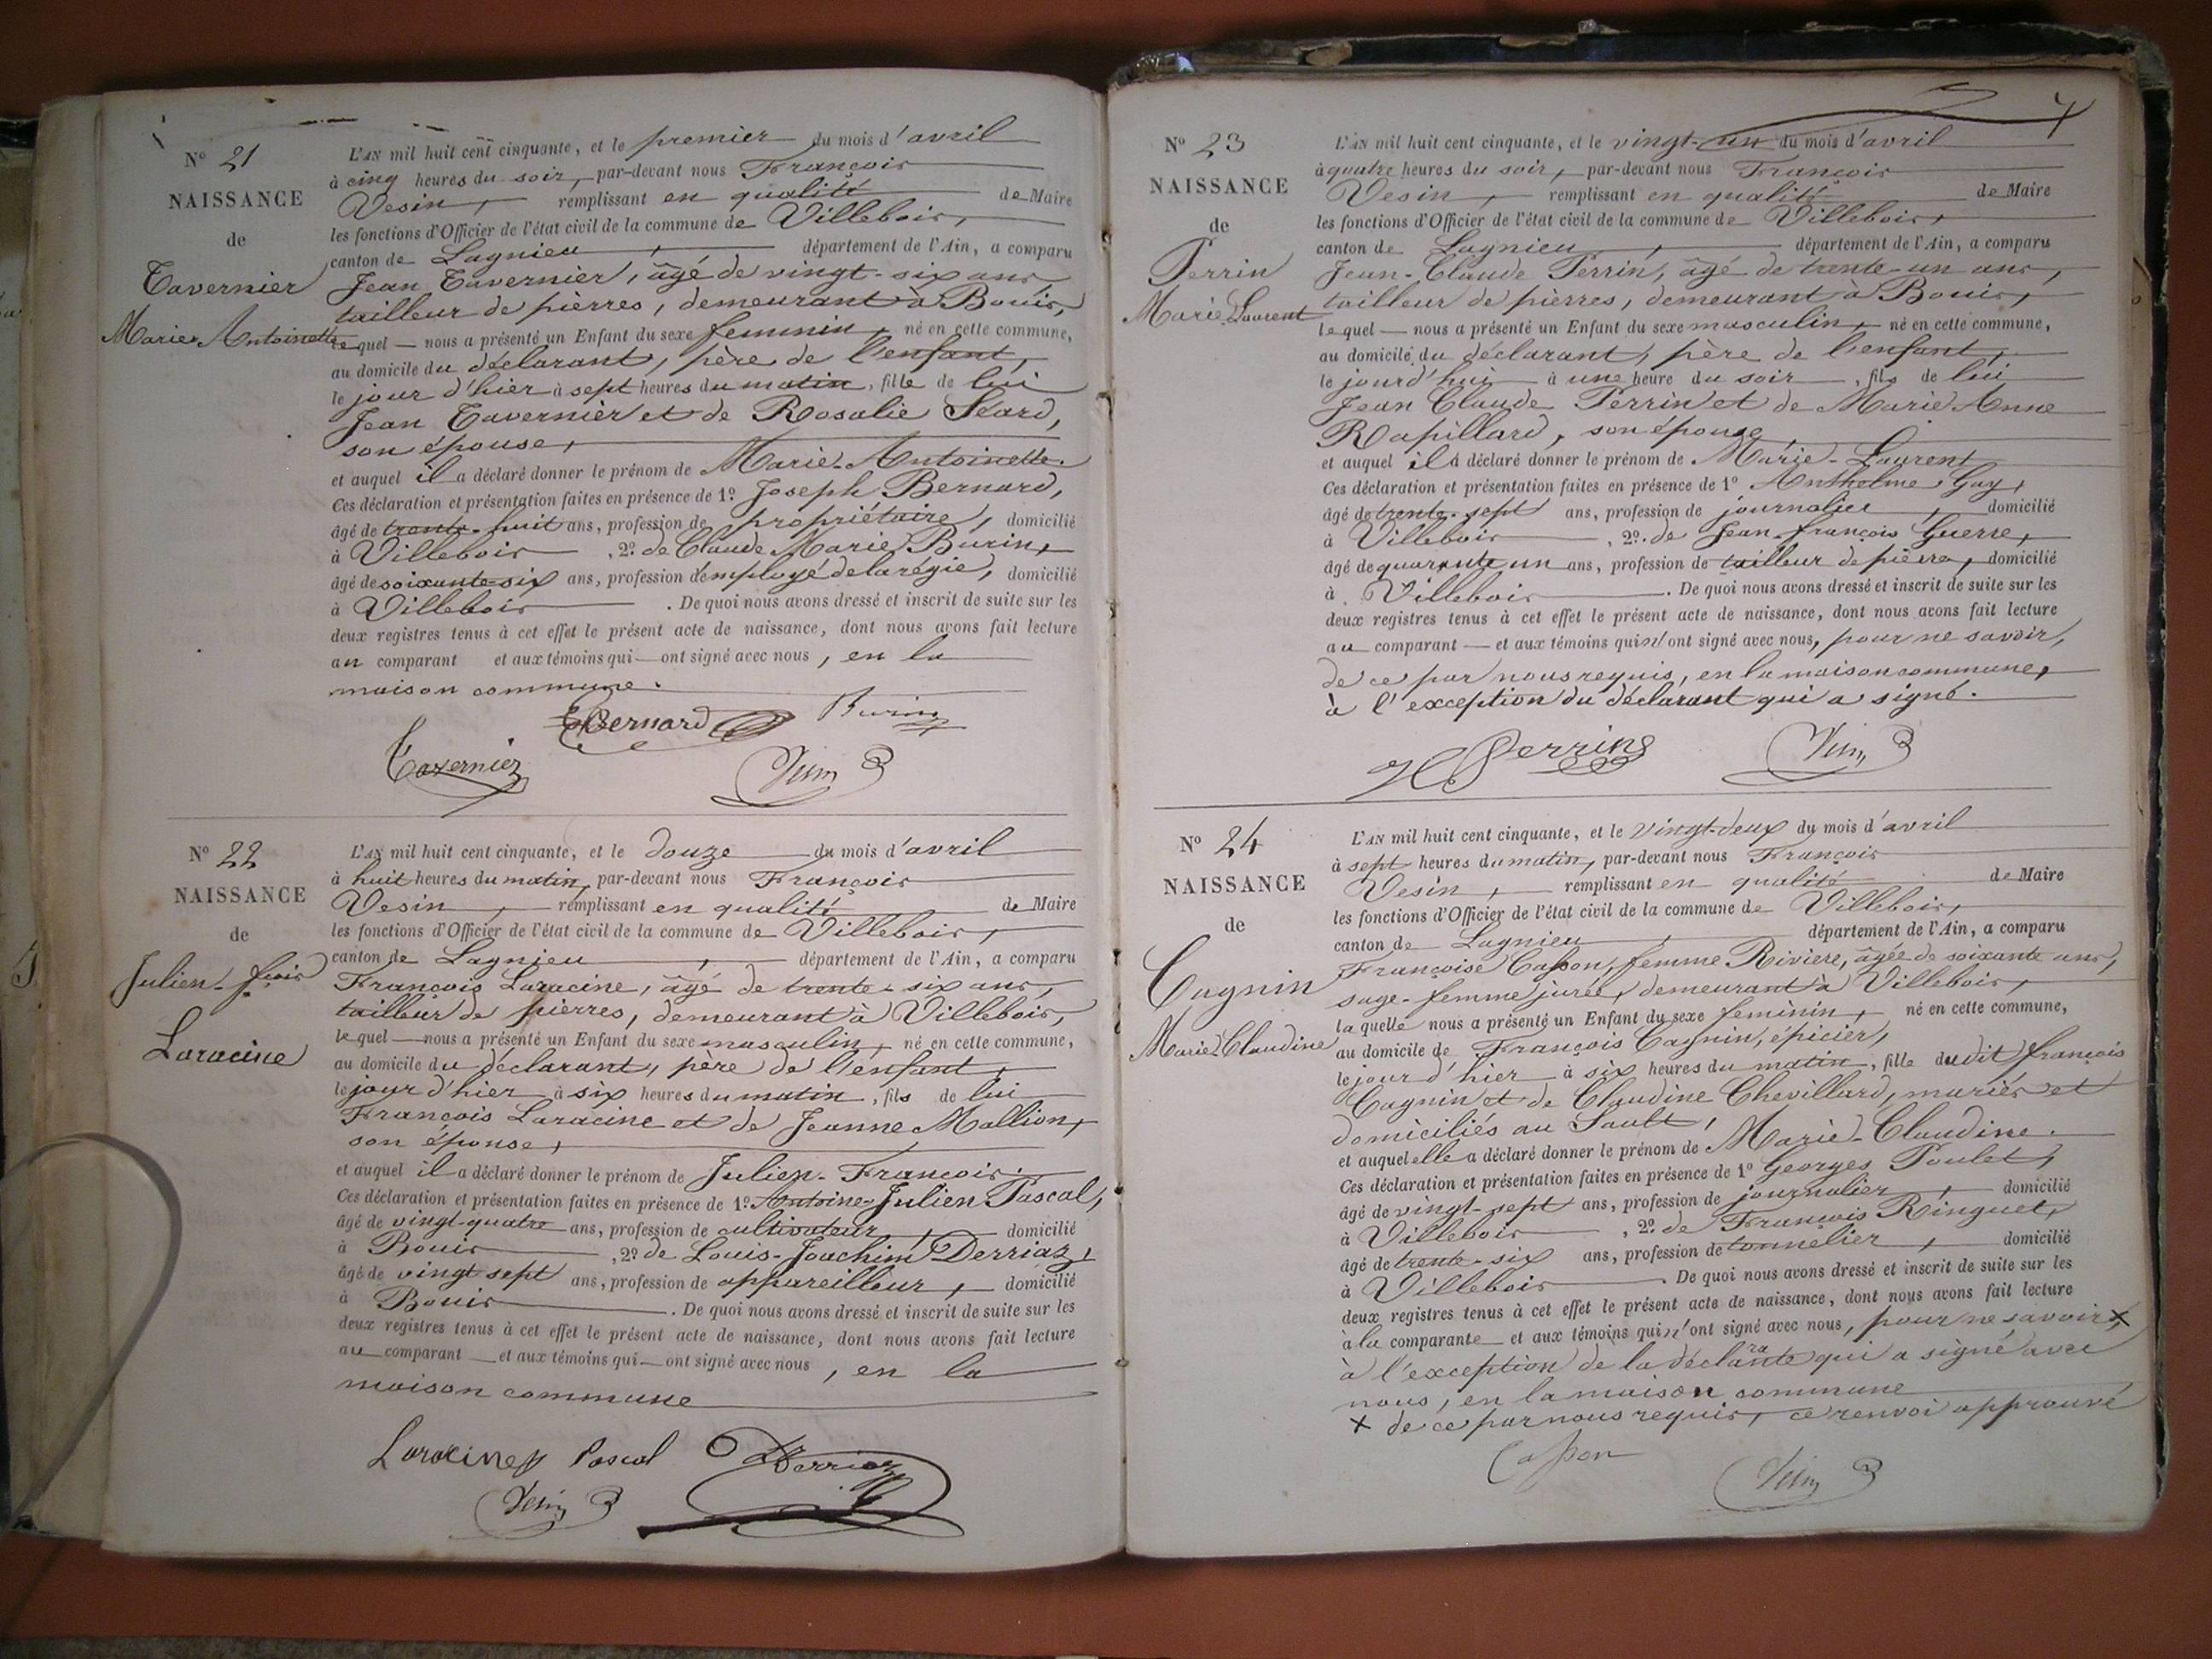 N° 21
NAISSANCE
de
Tavernier
Marie-Antoinette
L'AN mil huit cent cinquante, et le premier du mois d'avril
à cinq heures du soir, par-devant nous François
Vesin, remplissant en qualité de Maire
les fonctions d'Officier de l'état civil de la commune de Villebois,
canton de Lagnieu, département de l'Ain, a comparu
Jean Tavernier, âgé de vingt-six ans,
tailleur de pierres, demeurant à Bouis,
lequel nous a présenté un Enfant du sexe feminin, né en cette commune,
au domicile du déclarant, père de l'enfant,
le jour d'hier à sept heures du matin, fille de lui
Jean Tavernier et de Rosalie
son épouse,
et auquel il a déclaré donner le prénom de Marie-Antoinette.
Ces déclaration et présentation faites en présence de 1° Joseph Bernard,
âgé de trente-huit ans, profession de propriétaire, domicilié
à Villebois, 2° de Claude Marie Burin,
âgé de soixante-six ans, profession d'employé de la régie, domicilié
à Villebois. De quoi nous avons dressé et inscrit de suite sur les
deux registres tenus à cet effet le présent acte de naissance, dont nous avons fait lecture
au comparant et aux témoins qui ont signé avec nous, en la
maison commune.
Bernard Burin
Tavernier Vesin
N° 22
NAISSANCE
de
Julien-fcois
Laracine
L'AN mil huit cent cinquante, et le douze du mois d'avril
à huit heures du matin, par-devant nous François
Vesin, remplissant en qualité de Maire
les fonctions d'Officier de l'état civil de la commune de Villebois,
canton de Lagnieu, département de l'Ain, a comparu
François Laracine, âgé de trente-six ans,
tailleur de pierres, demeurant à Villebois,
lequel nous a présenté un Enfant du sexe masculin, né en cette commune,
au domicile du déclarant, père de l'enfant,
le jour d'hier à six heures du matin, fils de lui
François Laracine et de Jeanne Mallion,
son épouse,
et auquel il a déclaré donner le prénom de Julien-François.
Ces déclaration et présentation faites en présence de 1° Antoine-Julien Pascal,
âgé de vingt-quatre ans, profession de cultivateur, domicilié
à Bouis, 2° de Louis-Joachim Derriaz,
âgé de vingt sept ans, profession de appareilleur, domicilié
à Bouis. De quoi nous avons dressé et inscrit de suite sur les
deux registres tenus à cet effet le présent acte de naissance, dont nous avons fait lecture
au comparant et aux témoins qui ont signé avec nous, en la
maison commune
Laracine Pascal Derriaz
Vesin
N° 23
NAISSANCE
de
Perrin
Marie-Laurent
L'AN mil huit cent cinquante, et le vingt-un du mois d'avril
à quatre heures du soir, par-devant nous François
Vesin, remplissant en qualité de Maire
les fonctions d'Officier de l'état civil de la commune de Villebois,
canton de Lagnieu, département de l'Ain, a comparu
Jean-Claude Perrin, âgé de trente-un ans,
tailleur de pierres, demeurant à Bouis,
lequel nous a présenté un Enfant du sexe masculin, né en cette commune,
au domicile du déclarant, père de l'enfant,
le jourd'hui à une heure du soir, fils de lui
Jean Claude Perrin et de Marie Anne
Rapillard, son épouse,
et auquel il a déclaré donner le prénom de Marie-Laurent
Ces déclaration et présentation faites en présence de 1° Anthelme Guy,
âgé de trente-sept ans, profession de journalier, domicilié
à Villebois, 2° de Jean-françois Guerre,
âgé de quarante un ans, profession de tailleur de pierre, domicilié
à Villebois. De quoi nous avons dressé et inscrit de suite sur les
deux registres tenus à cet effet le présent acte de naissance, dont nous avons fait lecture
au comparant et aux témoins qui n'ont signé avec nous, pour ne savoir,
de ce par nous requis, en la maison commune,
à l'exception du déclarant qui a signé.
Perrin Vesin
N° 24
NAISSANCE
de
Cagnin
Marie-Claudine
L'AN mil huit cent cinquante, et le vingt-deux du mois d'avril
à sept heures du matin, par-devant nous François
Vesin, remplissant en qualité de Maire
les fonctions d'Officier de l'état civil de la commune de Villebois,
canton de Lagnieu, département de l'Ain, a comparu
Françoise Casson, femme Riviere, âgée de soixante ans,
sage-femme jurée, demeurant à Villebois,
laquelle nous a présenté un Enfant du sexe feminin, né en cette commune,
au domicile de François Cagnin, épicier,
le jour d'hier à six heures du matin, fille dudit françois
Cagnin et de Claudine Chevillard, mariés et
domiciliés au Sault,
et auquel elle a déclaré donner le prénom de Marie-Claudine.
Ces déclaration et présentation faites en présence de 1° Georges Poulet,
âgé de vingt-sept ans, profession de journalier, domicilié
à Villebois, 2° de François Ringuet,
âgé de trente-six ans, profession de tonnelier, domicilié
à Villebois. De quoi nous avons dressé et inscrit de suite sur les
deux registres tenus à cet effet le présent acte de naissance, dont nous avons fait lecture
à la comparante et aux témoins qui n'ont signé avec nous, pour ne savoir x
à l'exception de la déclarante qui a signé avec
nous, en la maison commune
x de ce par nous requis, ce renvoi approuvé
Casson Vesin